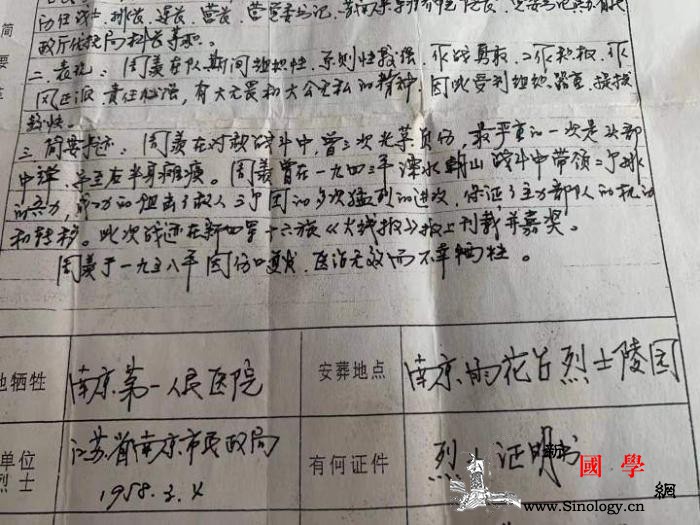 简
要
历任战士、排长、连长、营长、党委书记
政厅优抚局科长等职。
二、表现:周义在队期间组织性、原则性较强,作战勇敢,工作积极,作
风正派,责任性强,有大无畏和大公无私的精神,因此受到组织器重,提拔
较快。
三、简要事迹:周义在对敌战斗中,曾三次光荣负伤,最严重的一次是头部
中弹,导至右半身瘫痪。周义曾在一九四三年溧水 山战斗中带领二个排
的兵力,成功的阻击了敌人三个团的多次猛烈的进攻,保证了主力部队的机动
和转移。此次战迹在新四军十六旅《火线报》报上刊载并嘉奖。
周义于一九五八年因伤口复发,医治无效而不幸牺牲。
地牺牲
南京第一人民医院
安葬地点
南京雨花台烈士陵园
单位
烈士
江苏省南京市民政局
1958.3.4
有何证件
烈士证明书
國學
網
www.Sinology.cn